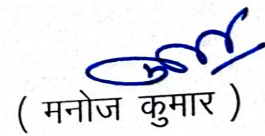 ( मनोज कुमार )